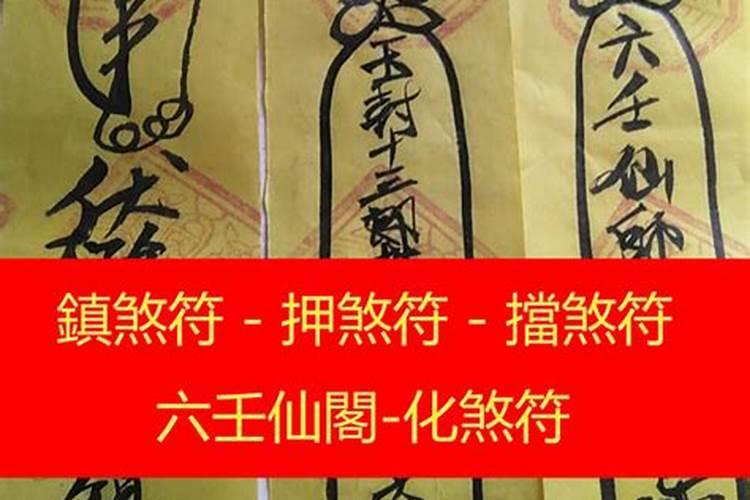 伏
玉封十三
六壬仙師
鎮煞符 - 押煞符 - 擋煞符
六壬仙閣-化煞符